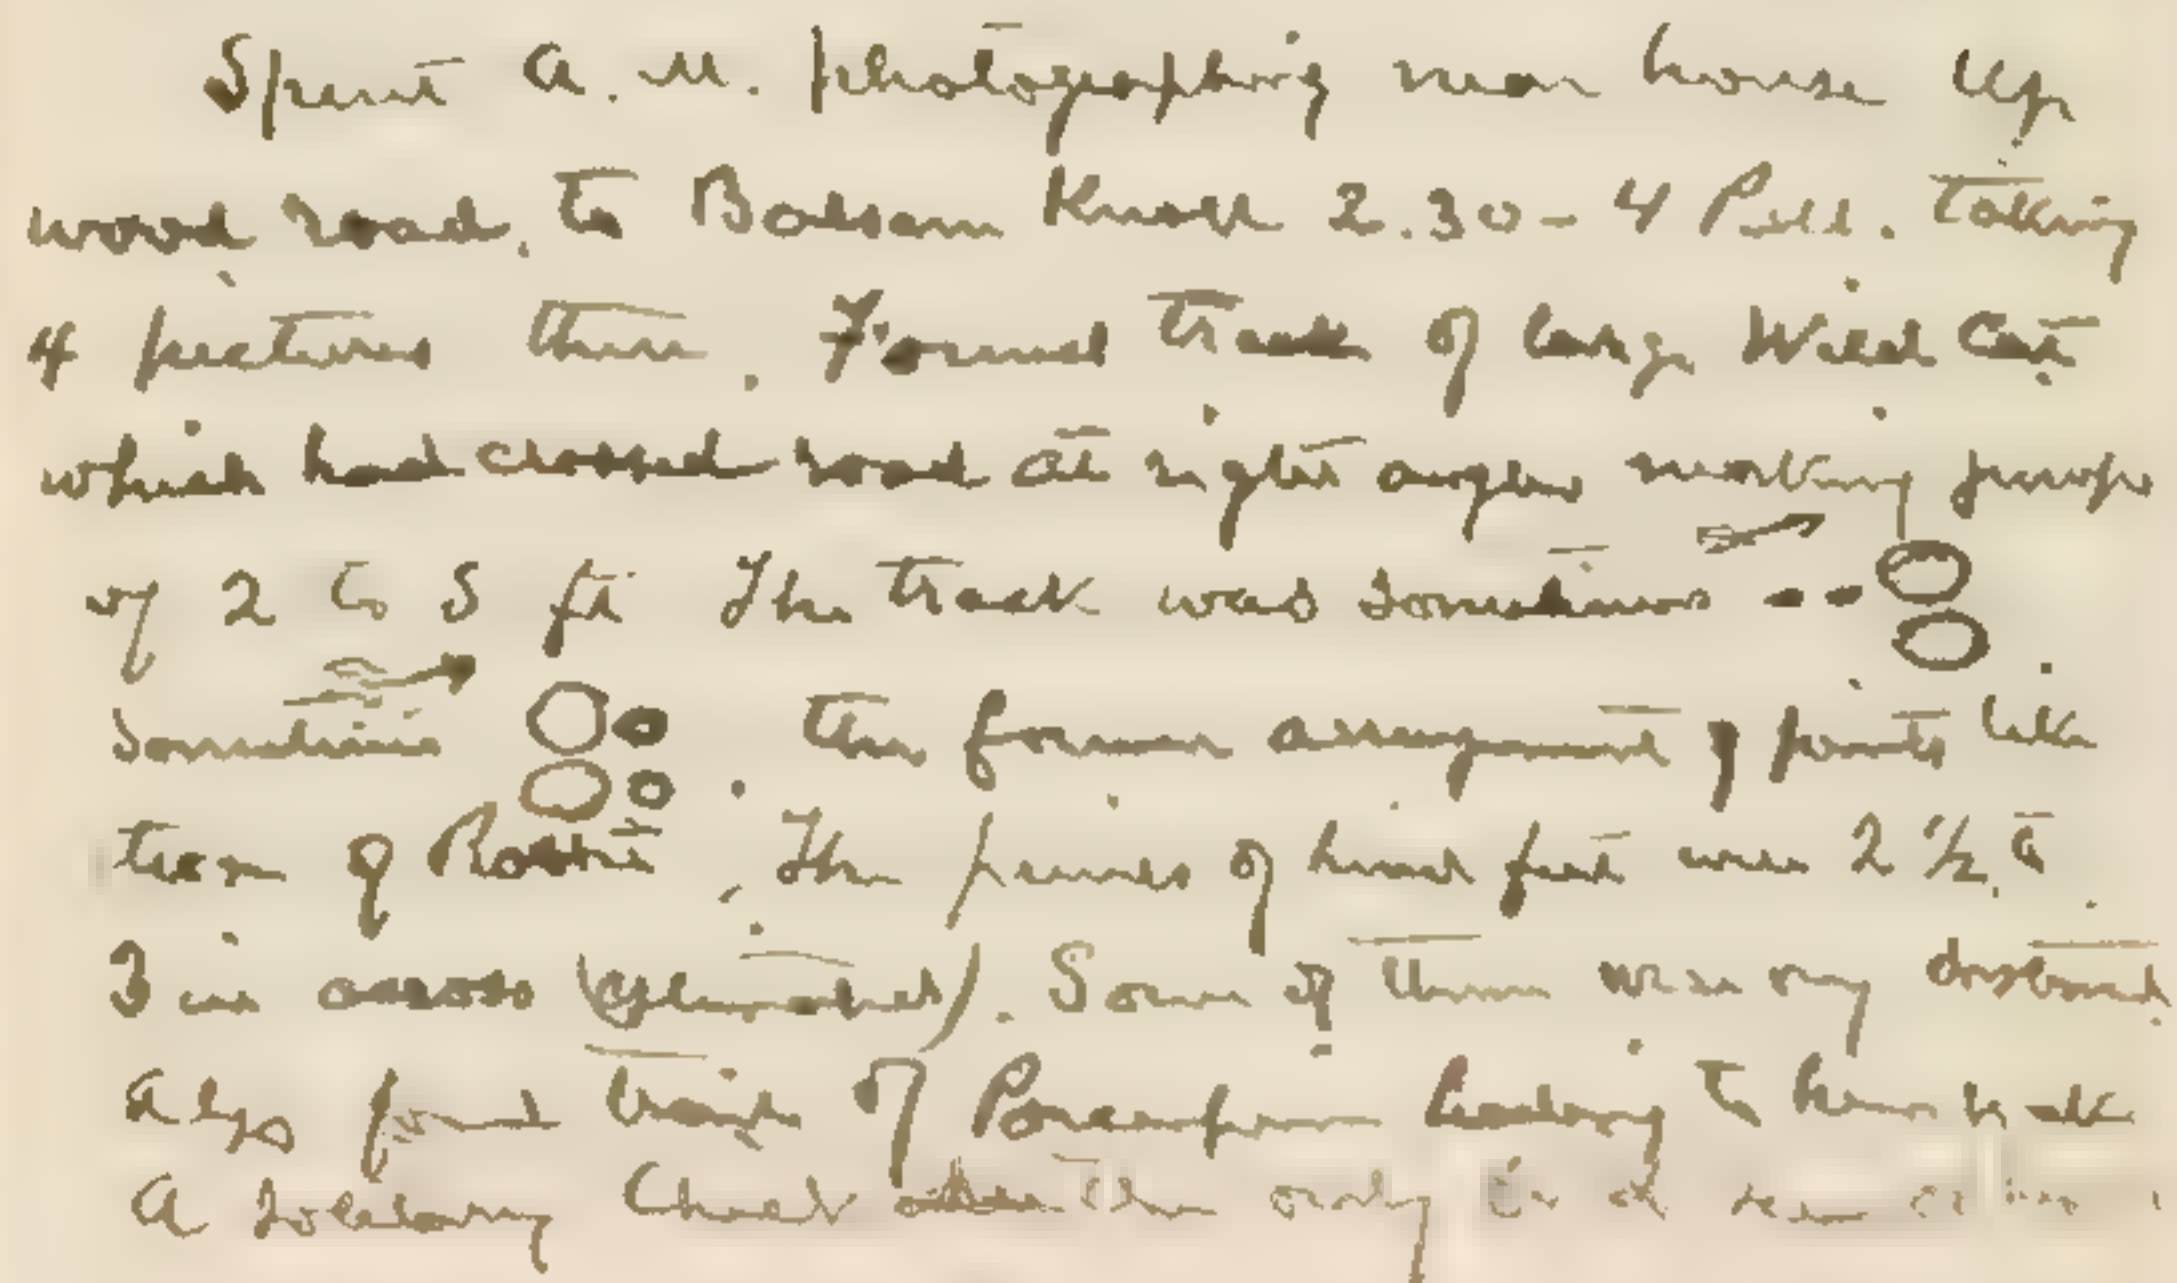 Spent A.M. photographing near house up
wood road, to Balsam Knoll 2.30 - 4 P.M. taking
4 pictures there. Found track of large Wild Cat
which had crossed road at right angles making jumps
of 2 to 5 ft The track was sometimes
Sometimes . the former arrangement of prints like
that of Rabbit. The prints of hind feet were 2 1/2 to
3 in across (estimated). Some of them were very distinct
Also found trail of Porcupine leading to hemlock
A solitary Chick the only bird seen